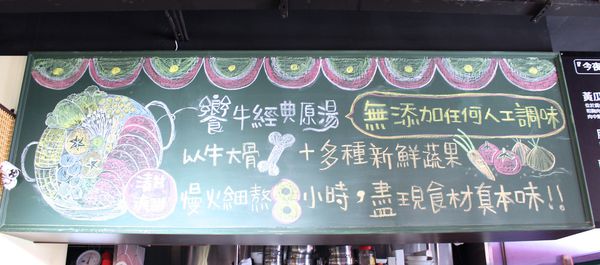 饗牛經典原湯 無添加任何人工調味
以牛大骨 + 多種新鮮蔬果
慢火細熬8小時，盡現食材真本味!!
『今夜
黃瓜